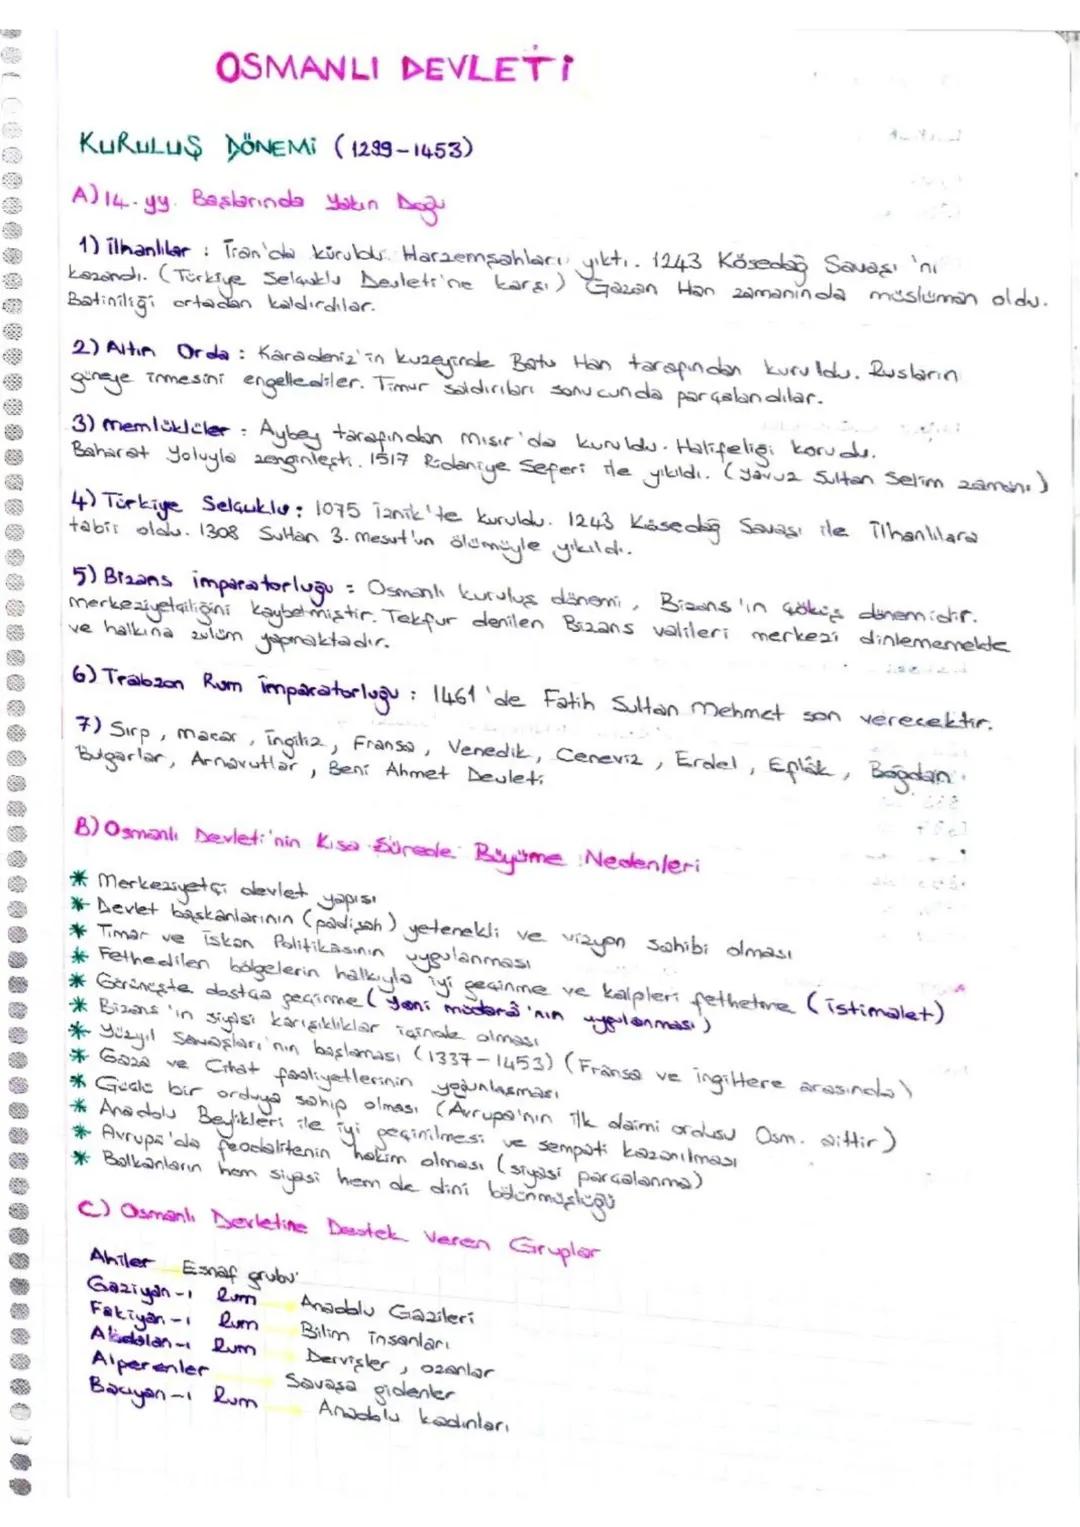 OSMANLI DEVLETİ
KURULUŞ DÖNEMİ (1299-1453)
A) 14. yy. Başlarında Yakın Doğu
1) İlhanlılar : İran'da kuruldu. Harzemşahları yıktı. 1243 Kösedağ Savaşı 'nı
kazandı. (Türkiye Selçuklu Devleti'ne karşı) Gazan Han zamanında müslüman oldu.
Batiniliği ortadan kaldırdılar.
2) Altın Orda : Karadeniz'in kuzeyinde Batu Han tarafından kuruldu. Rusların
güneye inmesini engellediler. Timur saldırıları sonucunda parçalandılar.
3) Memlüklüler : Aybey tarafından Mısır'da kuruldu. Halifeliği korudu.
Baharat Yoluyla zenginleşti. 1517 Ridaniye Seferi ile yıkıldı. (Yavuz Sultan Selim zamanı)
4) Türkiye Selçuklu : 1075 İznik'te kuruldu. 1243 Kösedağ Savaşı ile İlhanlılara
tabii oldu. 1308 Sultan 3. Mesut'un ölümüyle yıkıldı.
5) Bizans İmparatorluğu : Osmanlı kuruluş dönemi, Bizans'ın çöküş dönemidir.
Merkeziyetçiliğini kaybetmiştir. Tekfur denilen Bizans valileri merkezi dinlememekte
ve halkına zulüm yapmaktadır.
6) Trabzon Rum İmparatorluğu : 1461 'de Fatih Sultan Mehmet son verecektir.
7) Sırp, Macar, İngiliz, Fransa, Venedik, Ceneviz, Erdel, Eflâk, Boğdan
Bulgarlar, Arnavutlar, Beni Ahmet Devleti
B) Osmanlı Devleti'nin Kısa Sürede Büyüme Nedenleri
* Merkeziyetçi devlet yapısı
* Devlet başkanlarının (padişah) yetenekli ve vizyon sahibi olması
* Timar ve İskan Politikasının uygulanması
* Fethedilen bölgelerin halkıyla iyi geçinme ve kalpleri fethetme (istimalet)
* Görünüşte dostça geçinme (Yani müdara'nın uygulanması)
* Bizans'ın siyasi karışıklıklar içinde olması
* Yüzyıl Savaşları'nın başlaması (1337-1453) (Fransa ve İngiltere arasında)
* Gaza ve Cihat faaliyetlerinin yoğunlaşması
* Güçlü bir orduya sahip olması (Avrupa'nın ilk daimi ordusu Osm. aittir)
* Anadolu Beylikleri ile iyi geçinilmesi ve sempati kazanılması
* Avrupa'da feodalitenin hakim olması (siyasi parçalanma)
* Balkanların hem siyasi hem de dini bölünmüşlüğü
C) Osmanlı Devletine Destek Veren Gruplar
Ahiler Esnaf grubu
Gaziyan-ı Rum Anadolu Gazileri
Fakiyan-ı Rum Bilim insanları
Abdalan-ı Rum Dervişler, ozanlar
Alperenler Savaşa gidenler
Bacıyan-ı Rum Anadolu kadınları